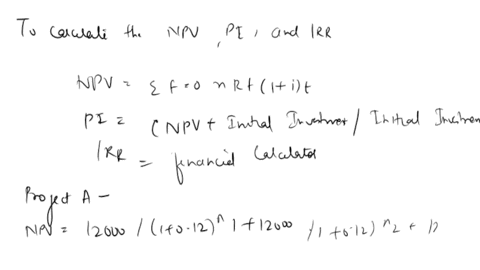 To calculate the NPV, PI, and IRR
NPV = Σ t=0 n Rt (1+i)t
PI = (NPV + Initial Investment / Initial Investmen
IRR = financial Calculator
Project A -
NPV = 12000 / (1+0.12)^1 + 12000 / 1+0.12)^2 + 12